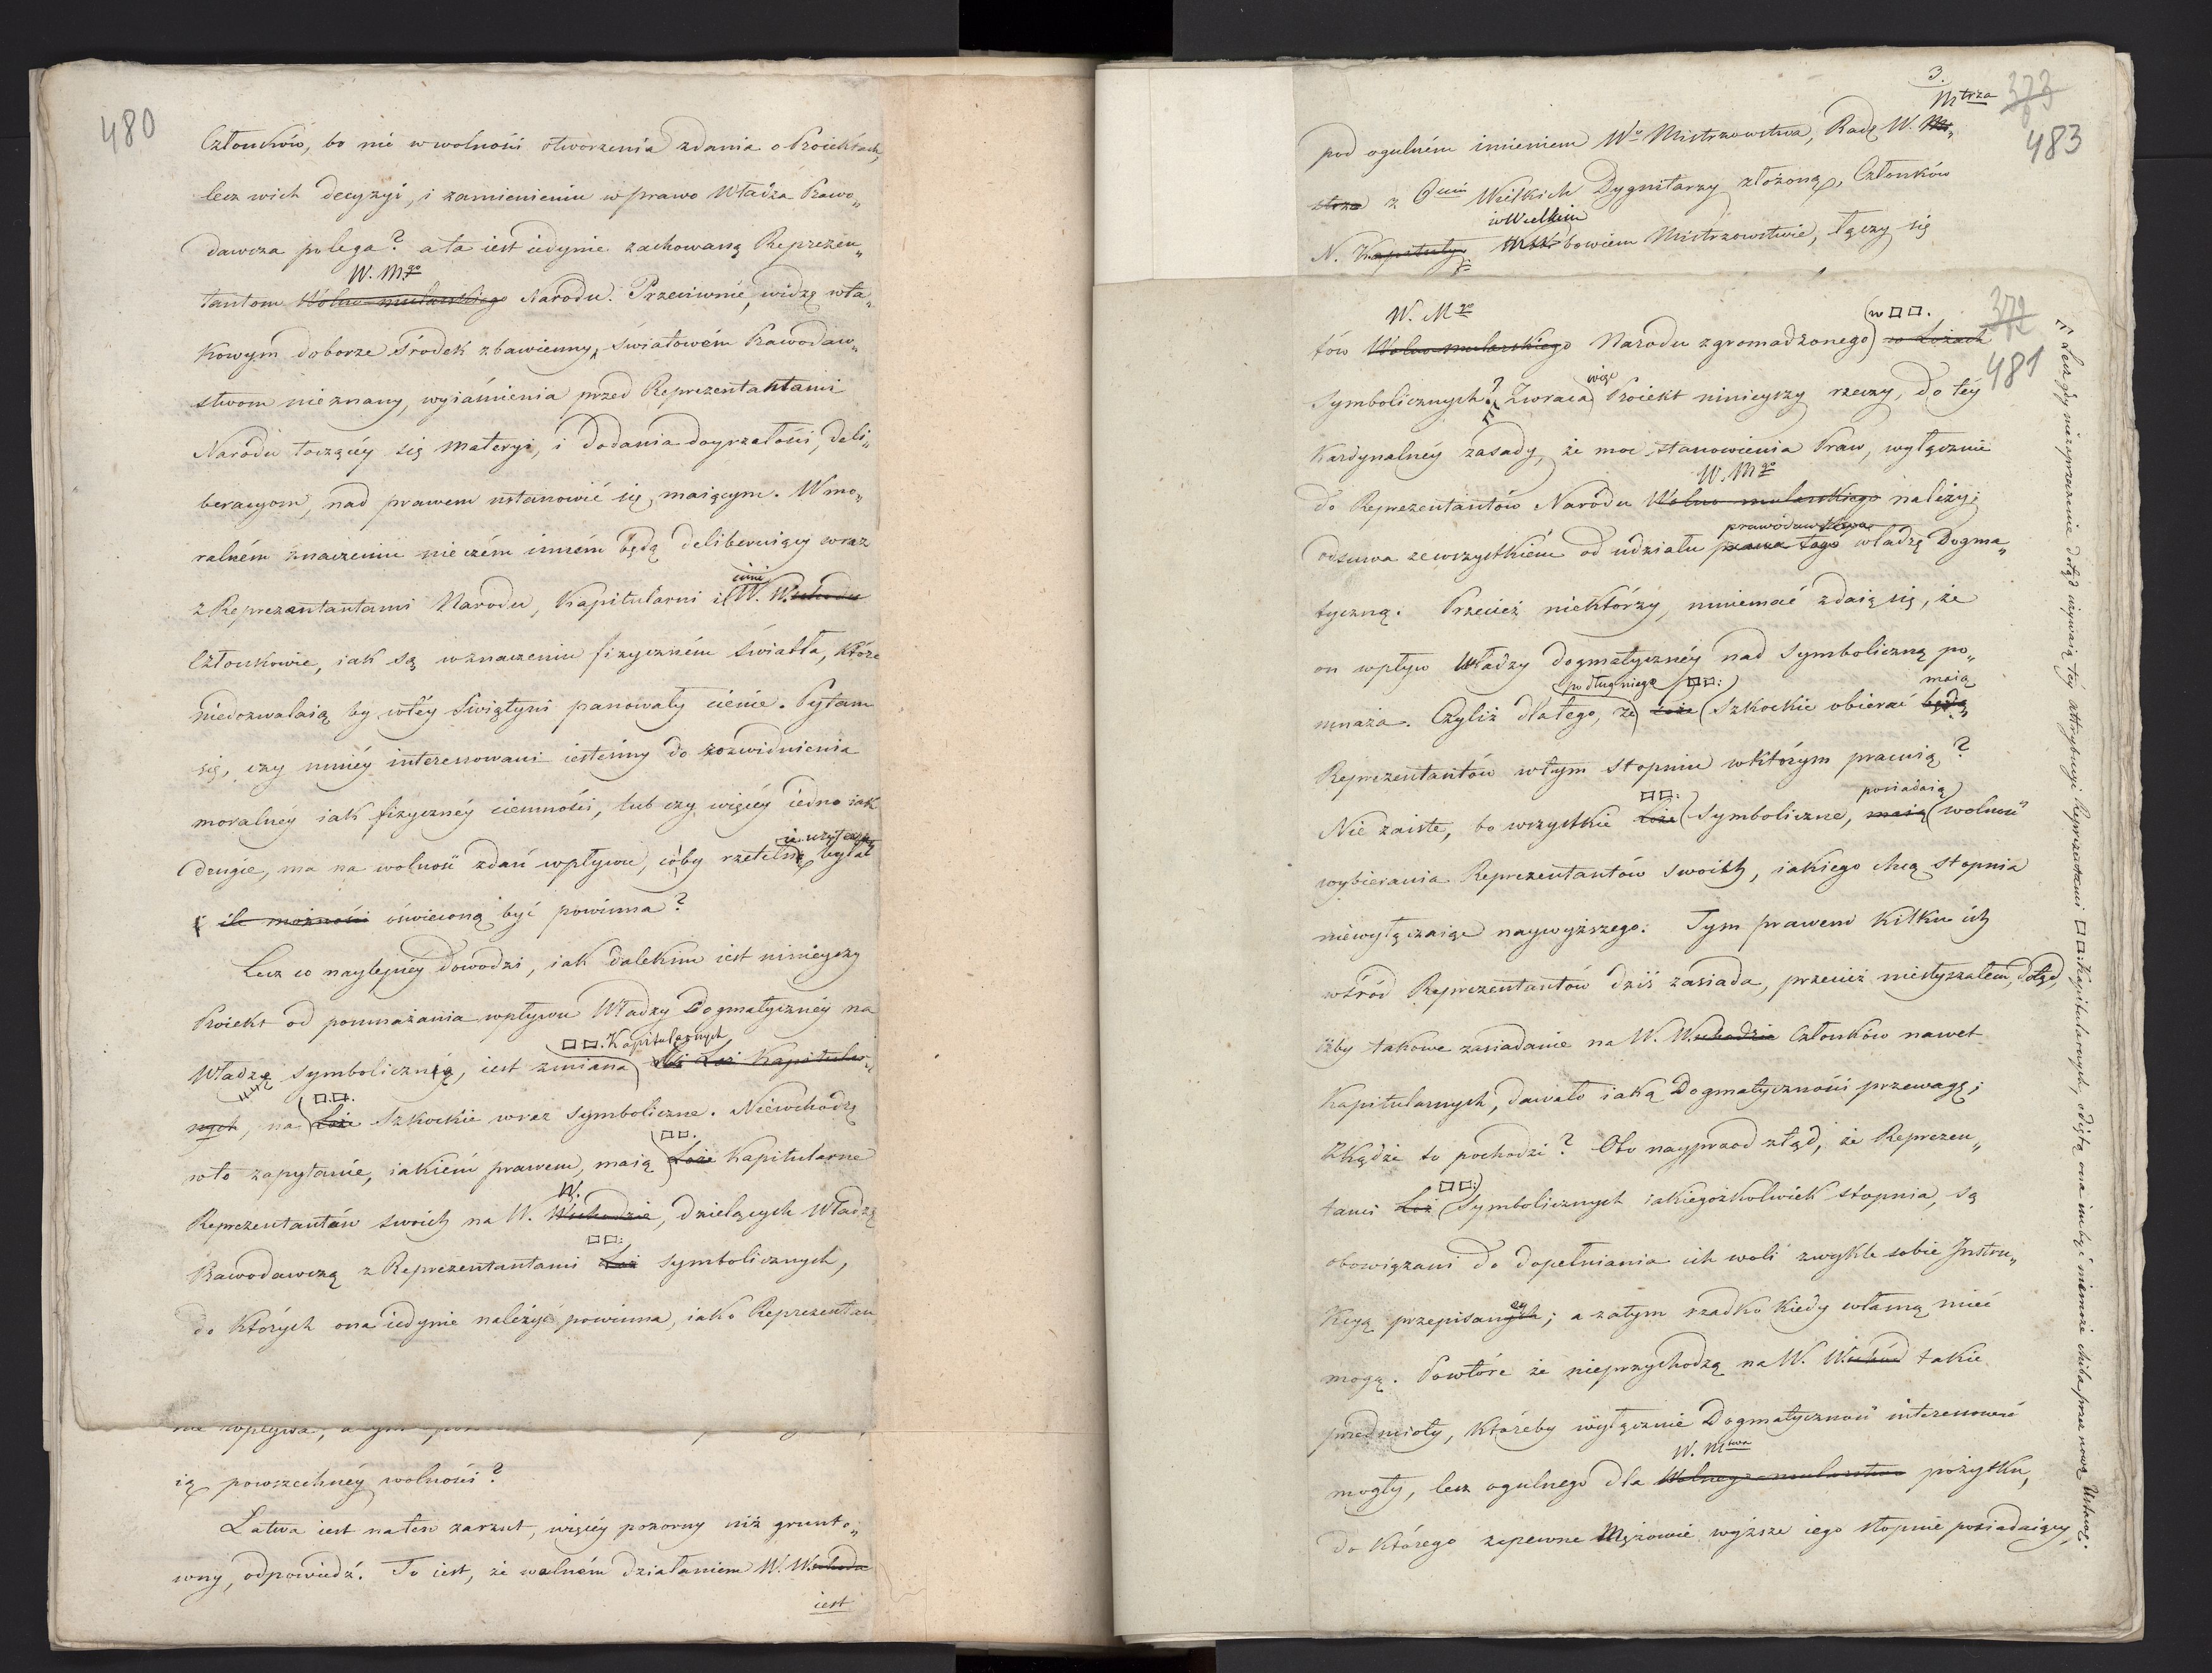 480
Członków, bo nie w wolności otworzenia zdania o Proiektach,
lecz w ich decyzyi, i zamienieniu w prawo Władza Prawo„
dawcza polega? a ta iest iedynie zachowaną Reprezen„
W. M.go
tantom Wolno-mularskiego Narodu. Przeciwnie, widzę w ta„
kowym doborze środek zbawienny, światowém Prawodaw„
stwom nieznany, wyiaśnienia przed Reprezentantami
Narodu toczącéy się materyi, i dodania doyrzałości, deli„
beracyom, nad prawem ustanowić się maiącym. W mo„
ralném znaczeniu nie czém inném będą deliberuiący wraz
inni
z Reprezentantami Narodu, Kapitularni i W. Wschodu
Członkowie, iak są w znaczeniu fizyczném światła, które
niedozwalaią by w téy Świątyni panowały cienie. Pytam
się, czy mniéy interessowani iesteśmy do rozwidnienia
moralnéy iak fizycznéy ciemności, lub czy więcéy iedno iak
drugie, ma na wolność zdań wpływu, coby rzetelnie
ile możności oświeconą być powinna?
Lecz co naylepiéy dowodzi, iak dalekim iest ninieyszy
Proiekt od pomnażania wpływu Władzy Dogmatycznéy na
□□. Kapitularnych
Władzę symboliczną, iest zmiana Lóż Kapitular„
□.□.
nych, na Loże Szkockie wraz symboliczne. Niewchodzę
□□.
w to zapytanie, iakiém prawem, maią Loże Kapitularne
W.
Reprezentantów swoich na W. Wschodzie, dzielących Władzę
□□:
Prawodawczą z Reprezentantami Lóż symbolicznych,
do których ona iedynie należyć powinna, iako Reprezentan
nie wpływa, a
ią powszechnéy wolności?
Łatwa iest na ten zarzut, więcéy pozorny niż grunto„
wny, odpowiedź. To iest, że walném działaniem W. Wschodu
iest
3.
373
483
Mtrza
pod ogulném imieniem Wo Mistrzowstwa, Radę W. Mi„
strza z 6ciu Wielkich Dygnitarzy złożoną, Członków
w Wielkim
N. Kapituły. bowiem Mistrzowstwie, łączy się
372
481
W. Mgo
(w □□.
tów Wolno-mularskiego Narodu zgromadzonego w Lożach
więc
Symbolicznych? Zwraca Proiekt ninieyszy rzeczy, do téy
Kardynalnéy zasady, że moc stanowienia Praw, wyłącznie
W. Mgo
do Reprezentantów Narodu Wolno-mularskiego należy;
prawodawstwa
odsuwa ze wszystkiém od udziału prawa tego władzę Dogma„
tyczną. Przecież niektórzy, mniemać zdaią się, że
on wpływ Władzy dogmatycznéy nad Symboliczną po„
podług niego □□:
maią
mnaża. Czyliż dlatego, że Loże Szkockie obierać będą
Reprezentantów w tym stopniu w którym pracuią?
□□:
posiadaią
Nie zaiste, bo wszystkie Loże Symboliczne, maią wolność
wybierania Reprezentantów swoich, iakiego chcą stopnia
niewyłączaiąc naywyższego. Tym prawem kilku ich
wśród Reprezentantów dziś zasiada, przecież niesłyszałem, dotąd,
iżby takowe zasiadanie na W. Wschodzie Członków nawet
Kapitularnych, dawało iaką Dogmatyczności przewagę;
Zkądże to pochodzi? Oto nayprzód ztąd, że Reprezen„
□□:
tanci Lóż Symbolicznych iakiegożkolwiek stopnia, są
obowiązani do dopełniania ich woli zwykle sobie Instru„
ey
kcyą przepisanych; a zatym rzadko kiedy własną mieć
mogą. Powtóre że nieprzychodzą na W. Wschód takie
przedmioty, któreby wyłącznie Dogmatyczność interessować
W. Mtwa
mogły, lecz ogulnego dla Wolnego-mularstwa pożytku,
do którego zapewne Mężowie wyższe iego stopnie posiadaiący
Lecz gdy niezaprzeczenie dotąd używaią téy attrybucyi Reprezentanci □□: Kapitularnych, odiętą ona im być niemoże chiba przez nową Ustawę.